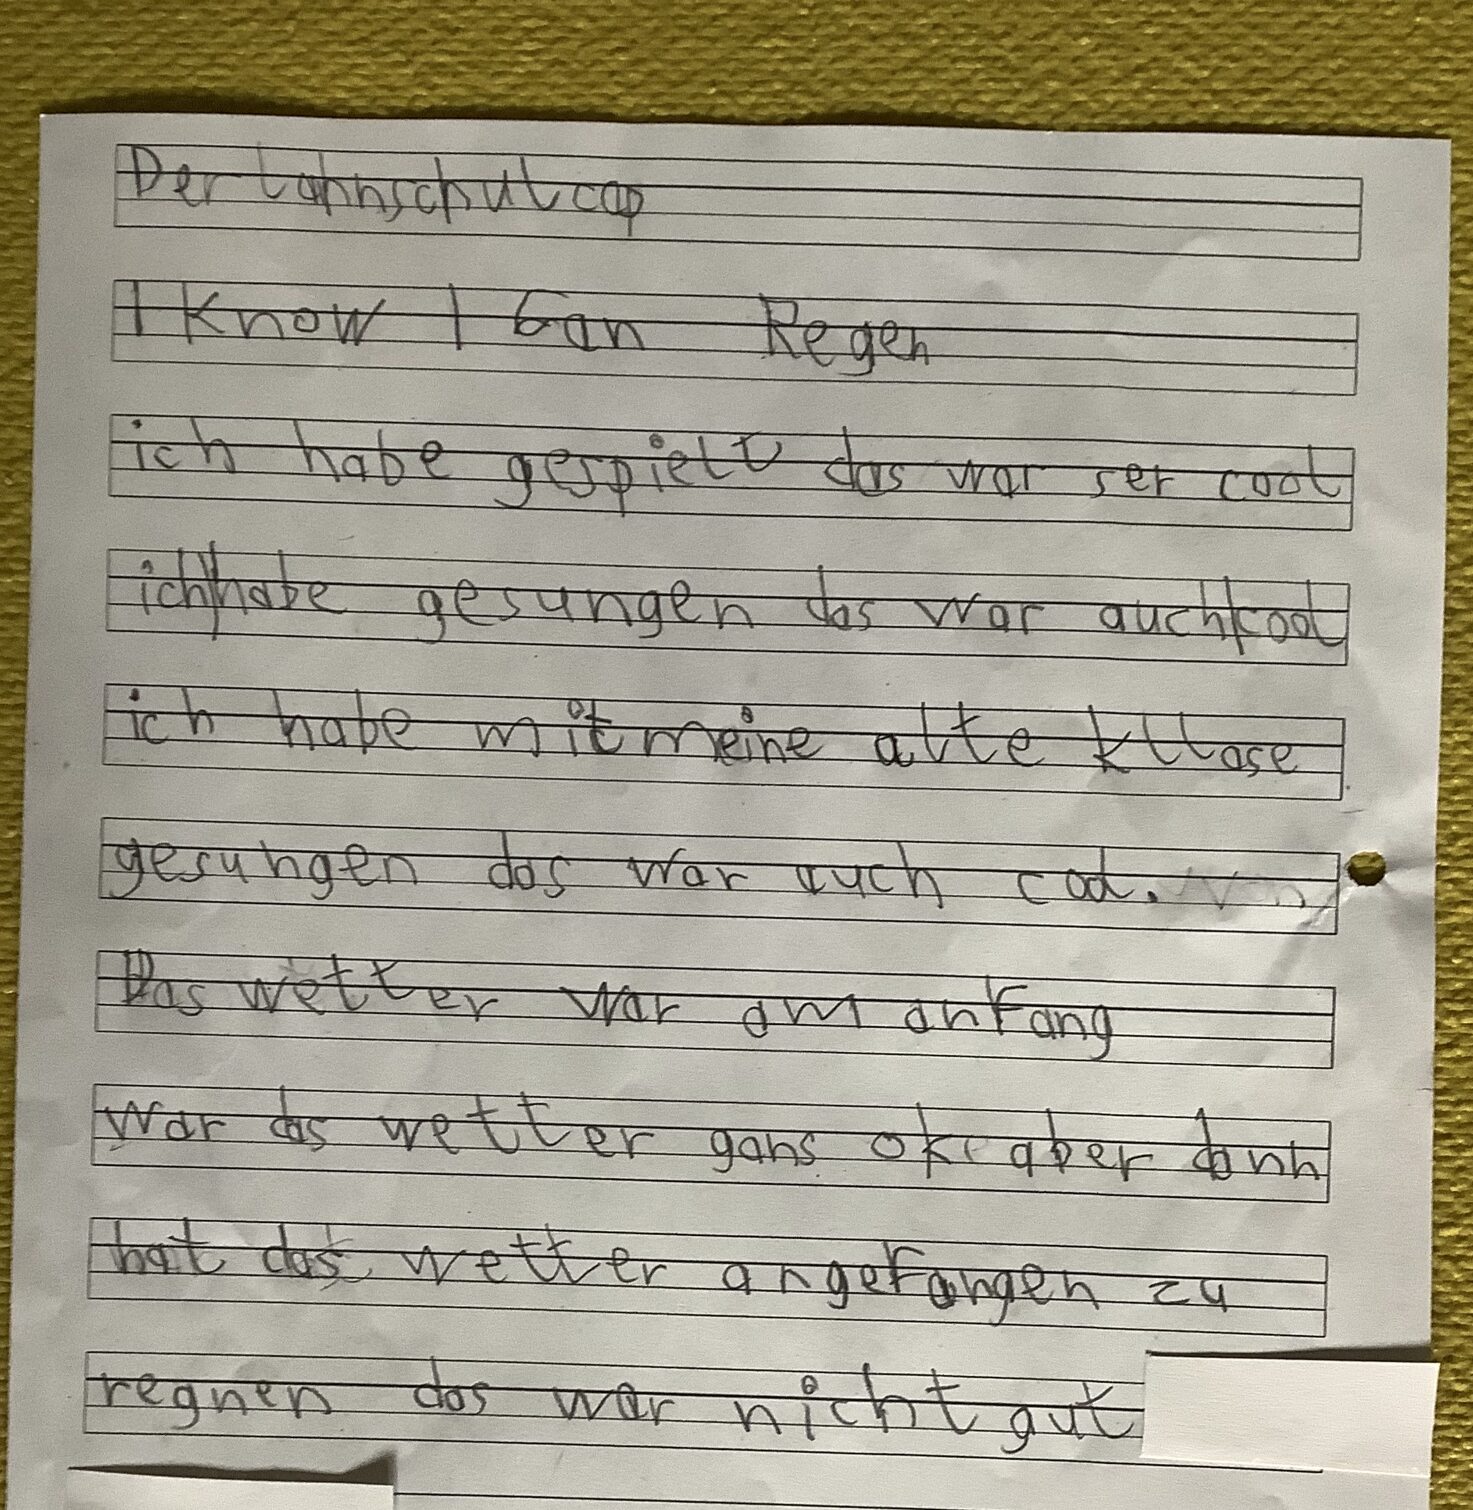 Der Lahnschulcap
I Know I Can Regen
ich habe gespielt das war ser cool
ich habe gesungen das war auch cool
ich habe mit meine alte kllase
gesungen das war auch cool.
Das wetter war am anfang
war das wetter gans ok aber dann
hat das wetter angefangen zu
regnen das war nicht gut